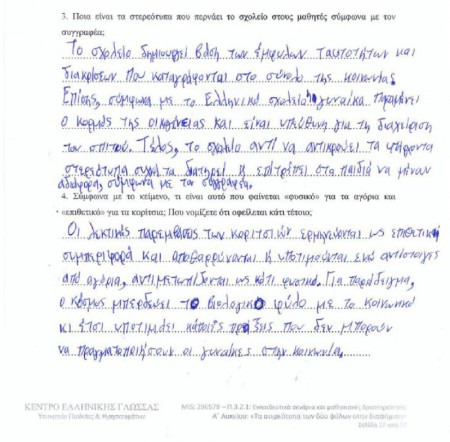 3. Ποια είναι τα στερεότυπα που περνάει το σχολείο στους μαθητές σύμφωνα με τον
συγγραφέα;
Το σχολείο δημιουργεί βάση των έμφυλων ταυτοτήτων και
διακρίσεων που καταγράφονται στο σύνολο της κοινωνίας.
Επίσης, σύμφωνα με το Ελληνικό σχολείο η γυναίκα παραμένει
ο κορμός της οικογένειας και είναι υπεύθυνη για τη διαχείριση
του σπιτιού. Τέλος, το σχολείο αντί να αντικρούει τα υπάρχοντα
στερεότυπα συχνά τα διατηρεί ή επιτρέπει στα παιδιά να μένουν
αδιάφορα, σύμφωνα με τα συγγραφέα.
4. Σύμφωνα με το κείμενο, τι είναι αυτό που φαίνεται «φυσικό» για τα αγόρια και
«επιθετικό» για τα κορίτσια; Που νομίζετε ότι οφείλεται κάτι τέτοιο;
Οι λεκτικές παρεμβάσεις των κοριτσιών ερμηνεύονται ως επιθετική
συμπεριφορά και αποθαρρύνονται ή υποτιμούνται ενώ αντίστοιχες
από αγόρια, αντιμετωπίζονται ως κάτι φυσικό. Για παράδειγμα,
ο κόσμος μπερδεύει το βιολογικό φύλο με το κοινωνικό
κι έτσι υποτιμάει κάποιες πράξεις που δεν μπορούν
να πραγματοποιήσουν οι γυναίκες στην κοινωνία.
ΚΕΝΤΡΟ ΕΛΛΗΝΙΚΗΣ ΓΛΩΣΣΑΣ
MIS: 296579 – Π.3.2.1: Εκπαιδευτικά σενάρια και μαθησιακές δραστηριότητες
Α΄ Λυκείου: «Τα στερεότυπα των δύο φύλων στην διαφήμιση»